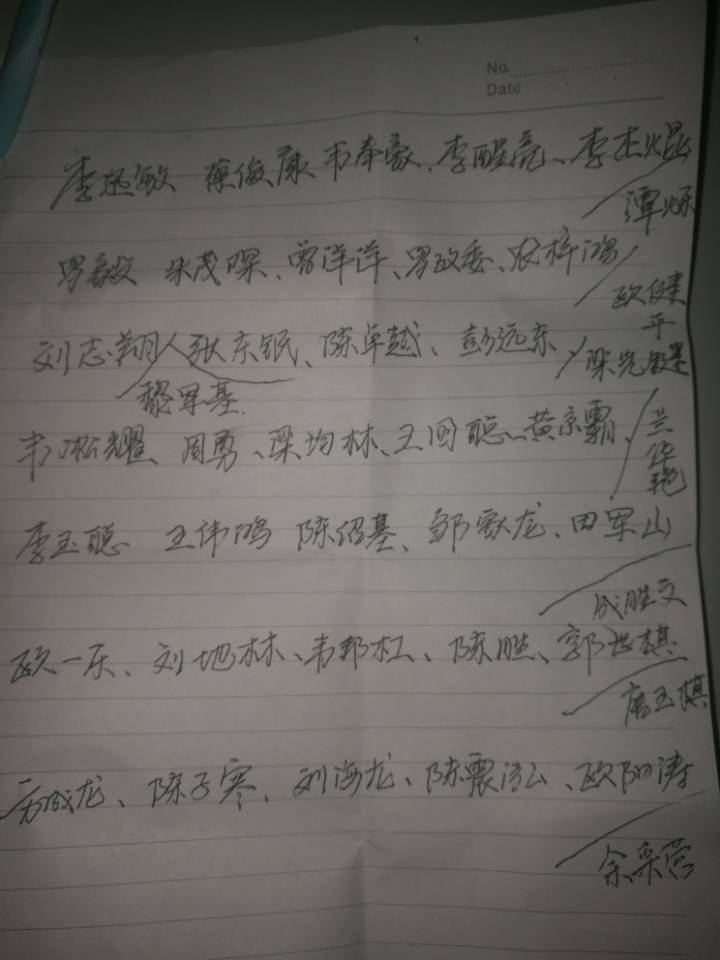 No.
Date
李迅敏 徐俊康 韦奉豪、李醒亮、李杰焜
谭烁
罗毅 朱茂琛、曾洋洋、罗政委、农梓鸿
欧健平
刘志翔 张东银、陈卓越、彭远东
梁光銀
黎军基
韦淞耀、周勇、梁均林、王国聪、黄京霸、
兰华艳
李玉聪 王伟鸣 陈绍基、邹家龙、田军山
成胜文
欧一乐、刘地林、韦邦杠、陈胜、郭世棋
唐玉棋
方成龙、陈子寒、刘海龙、陈震泓、欧阳涛
余采营